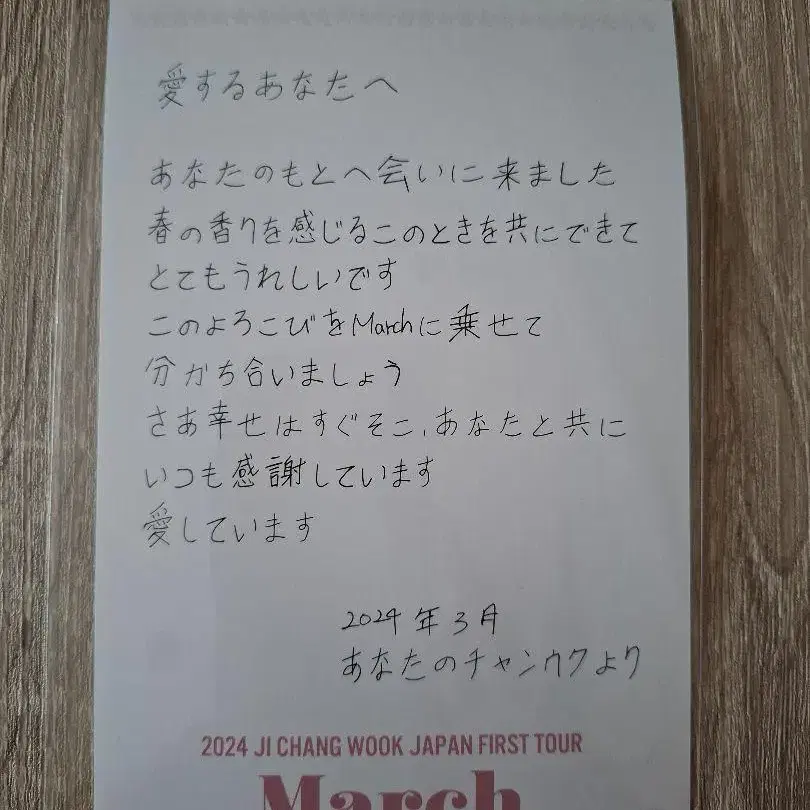 愛するあなたへ
あなたのもとへ会いに来ました
春の香りを感じるこのときを共にできて
とてもうれしいです
このよろこびをMarchに乗せて
分かち合いましょう
さあ幸せはすぐそこ、あなたと共に
いつも感謝しています
愛しています
2024年3月
あなたのチャンウクより
2024 JI CHANG WOOK JAPAN FIRST TOUR
March